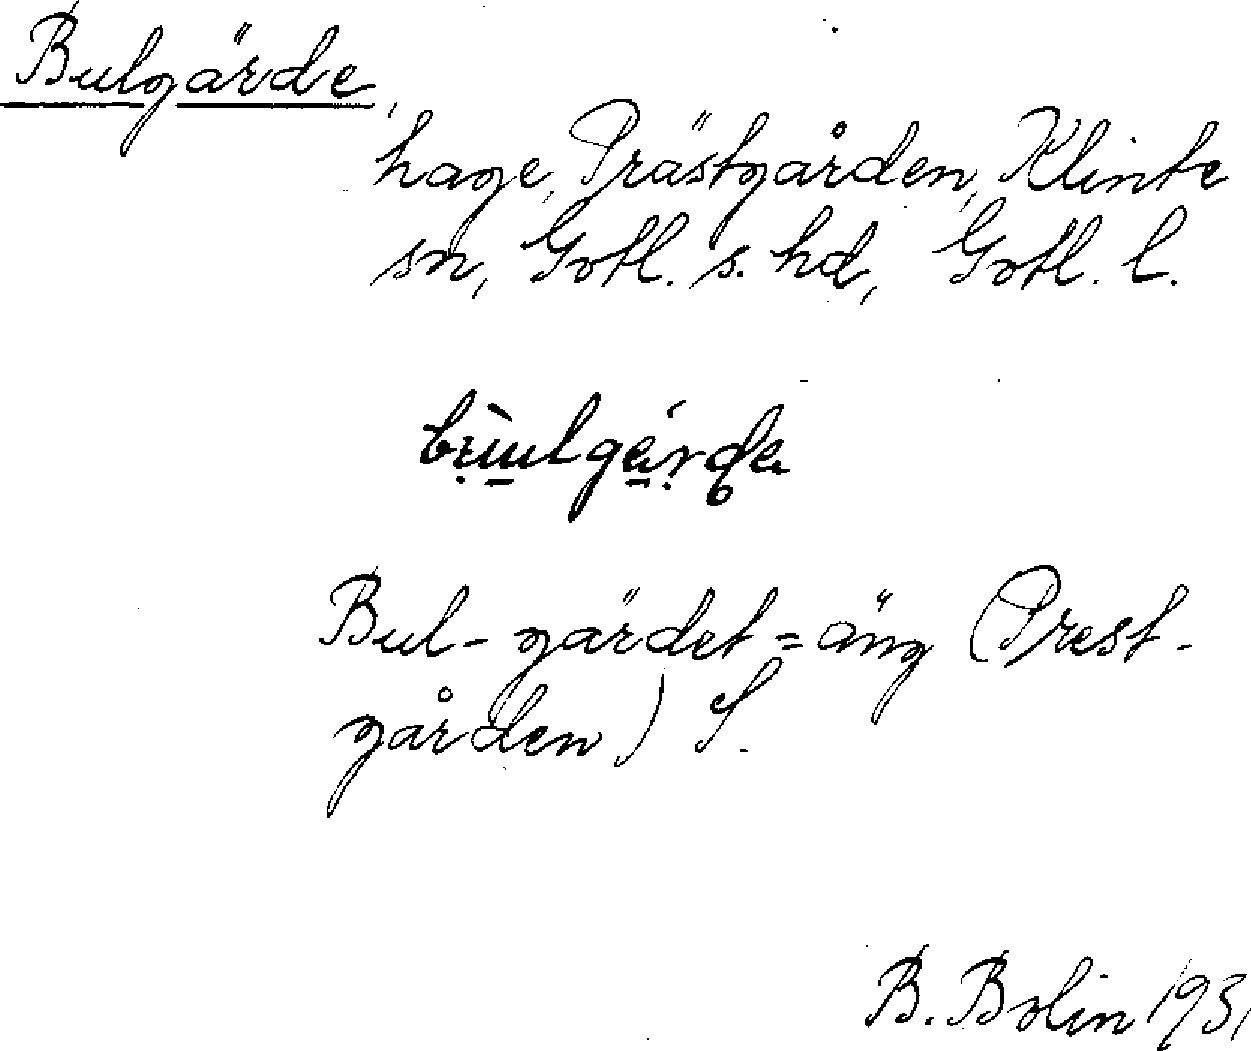 Bulgärde,
hage, Prästgården, Klinte
sn, Gotl. s. hd, Gotl. l.
Bul-gärdet = äng (Prest-
gården) S.
B. Bolin 1931